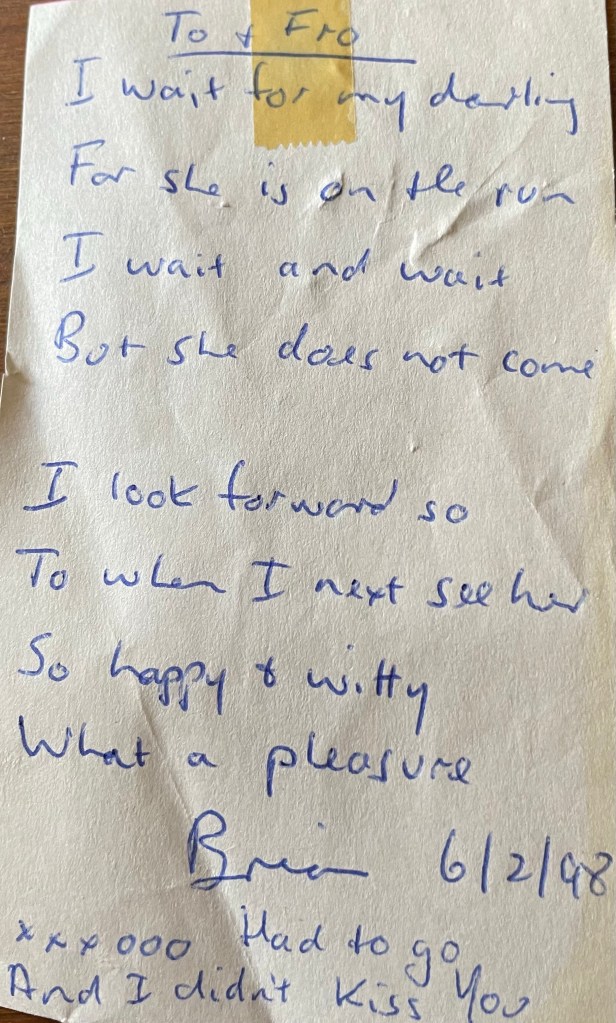 To & Fro
I wait for my darling
For she is on the run
I wait and wait
But she does not come
I look forward so
To when I next see her
So happy & witty
What a pleasure
Brian 6/2/98
xxx000 Had to go
And I didn't kiss you